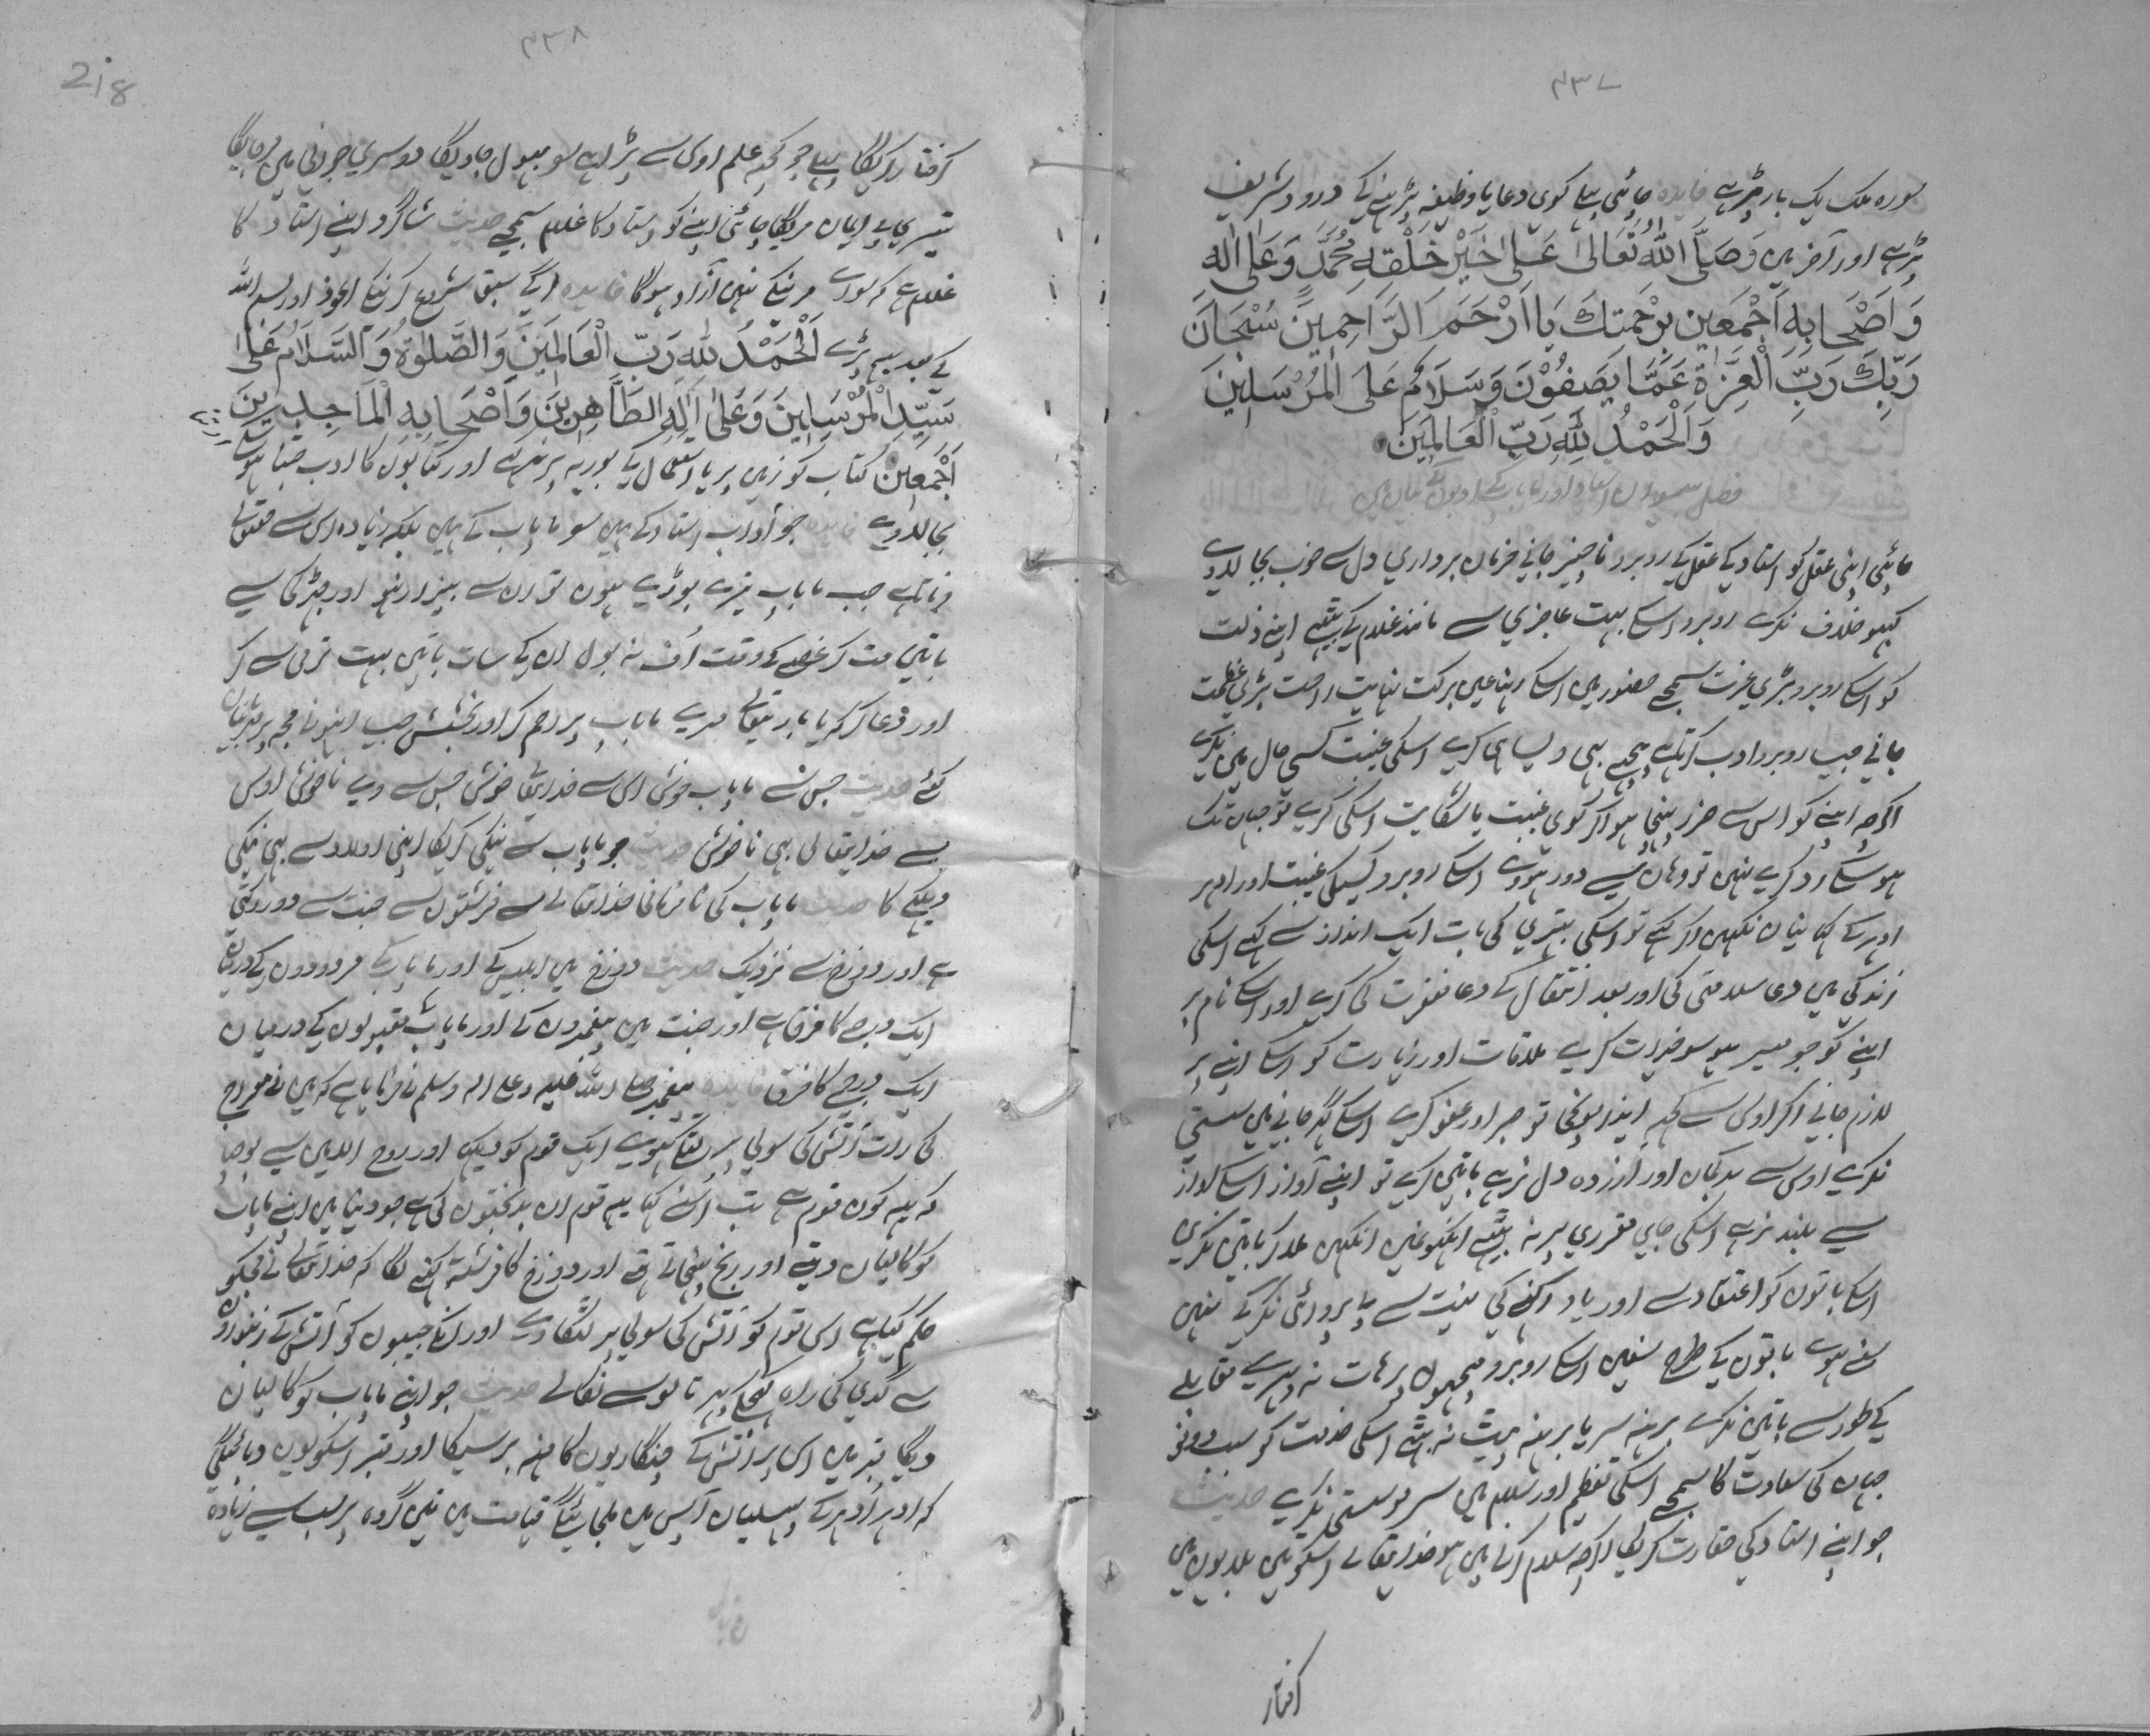 ۴۳۷
سوره ملک یک بار پڑہے فایده چاہئی پہلے کوی دعا یا وظیفہ پڑہنے کے درود شریف
پڑہے اور آخر میں وَصَلَّی اللّٰهُ تَعَالٰی عَلٰی خَیْرِ خَلْقِهٖ مُحَمَّدٍ وَعَلٰی اٰلِهٖ
وَاَصْحَابِهٖ اَجْمَعِیْنَ بِرَحْمَتِكَ یَا اَرْحَمَ الرَّاحِمِیْنَ سُبْحَانَ
رَبِّكَ رَبِّ الْعِزَّةِ عَمَّا یَصِفُوْنَ وَسَلَامٌ عَلَی الْمُرْسَلِیْنَ
وَالْحَمْدُ لِلّٰهِ رَبِّ الْعَالَمِیْنَ
فصل استاد اور ماباپ کے ادبوں کے بیان میں
چاہئی اپنی عقل کو استاد کے عقل کے روبرو ناچیز جانے فرمان برداری دل سے خوب بجا لاوے
کبہو خلاف نکرے روبرو اسکے بہت عاجزی سے مانند غلام کے بیٹھے اپنے ذلت
کو اسکے روبرو بڑی عزت سمجے حضور میں اسکے رہنا عین برکت نہایت راحت بڑی عظمت
جانے جیسا روبرو ادب کرتاہے پیچہے بہی ویسا ہی کرے اسکی غیبت کسی حال میں نکرے
اگرچہ اپنے کو اس سے ضرر پہنچا ہو اگر کوی غیبت یا شکایت اسکی کرے تو جہاں تک
ہوسکے رد کرے نہیں تو وہاں سے دور ہووے اسکے روبرو کسیکی غیبت اور ادہر
ادہر کے کہانیاں نکہیں اگر کہے تو اسکی بہتری کی بات ایک انداز سے کہے اسکی
زندگی میں دعا سلامتی کی اور بعد انتقال کے دعا مغفرت کی کرے اور اسکے نام پر
اپنے کو جو میسر ہو سو خیرات کرے ملاقات اور زیارت کو اسکے اپنے پر
لازم جانے اگر اوس سے کچہ ایذا پہونچا تو صبر اور عفو کرے اسکے گہر جانے میں سستی
نکرے اوس سے بدگمان اور آزرده دل نرہے باتیں کرے تو اپنے آواز اسکے آواز
سے بلند نرہے اسکی جای مقرری پر نہ بیٹھے انکہیں ملا کر باتیں نکریں
اسکے باتوں کو اعتقاد سے اور یاد رکہنے کی نیت سے بے پروائی نکر کے سنیں
سنے ہوے باتوں کے طرح سنیں اسکے روبرو ہات نہ مقابلے
کے طور سے باتیں نکرے برہنہ سر یا برہنہ پیٹ نہ بیٹھے اسکی خدمت کو سب دونو
جہاں کی سعادت کا سمجے اسکی تعظیم اور سلام میں سر مو سستی نکرے حدیث
جو اپنے استاد کی حقارت کریگا اگرچہ سلام کرنے میں ہو خدایتعالے اسکو تین بلایوں میں
گرفتار
۴۳۸
218
گرفتار کریگا پہلے جو کچہ علم اوس سے پڑا ہے سو بہول جاویگا دوسری جوانی میں مرجایگا
تیسری بے ایمان مریگا چاہئی اپنے کو استاد کا غلام سمجے حدیث شاگرد اپنے استاد کا
غلام ہے کہ سواے مرنیکے نہیں آزاد ہوگا فایده اگے سبق شروع کرنیکے اعوذ اور بسم اللہ
کے بعد یہہ پڑے اَلْحَمْدُ لِلّٰهِ رَبِّ الْعَالَمِیْنَ وَالصَّلٰوةُ وَالسَّلَامُ عَلٰی
سَیِّدِ الْمُرْسَلِیْنَ وَعَلٰی اٰلِهِ الطَّاهِرِیْنَ وَاَصْحَابِهِ الْمَاجِدِیْنَ
اَجْمَعِیْنَ کتاب کو زمین پر یا استعمال کے بوریہ پر نرکہے اور کتابوں کا ادب جتنا ہوسکے
بجا لاوے فایده جو آداب استاد کے ہیں سو ماباپ کے ہیں بلکہ زیاده اس سے حقتعالے
فرماتاہے جب ماباپ تیرے بوڑے ہوں تو ان سے بیزار نہو اور جڑکی سے
باتیں مت کر غصے کے وقت اُف نہ بول ان کے سات باتیں بہت نرمی سے کر
اور دعا کر کہ یا بار تعالے میرے ماباپ پر رحم کر اور بخشش جیسا انہونے مجہ پر مہربانیاں
کئے حدیث جس سے ماباپ خوش اس سے خدایتعالی خوش جس سے وے ناخوش اوس
سے خدایتعالی بہی ناخوش حدیث جو ماباپ سے نیکی کریگا اپنی اولاد سے بہی نیکی
دیکہے گا حدیث ماباپ کی نافرمانی خدایتعالے سے فرشتوں سے جنت سے دور رکہتی
ہے اور دوزخ سے نزدیک حدیث دوزخ میں ابلیس کے اور ماباپ کے مردودوں کے درمیان
ایک درجے کا فرق ہے اور جنت میں پیغمبروں کے اور ماباپ کے مقبولوں کے درمیان
ایک درجے کا فرق فایده پیغمبر صلے اللہ علیہ وعلے اله وسلم نے فرمایا ہے کہ میں نے معراج
کی رات آتش کی سولی پر لٹکے ہوے ایک قوم کو دیکہا اور روح الامین سے پوچہا
کہ یہہ کون قوم ہے تب اُسنے کہا یہہ قوم ان بدبختوں کی ہے جو دنیا میں اپنے ماباپ
کو گالیاں دیتے اور رنج پہنچاتے تہے اور دوزخ کا فرشتہ کہنے لگا کہ خدایتعالے نے مجکو
حکم کیاہے اس قوم کو آتش کی سولی پر لٹکا دے اور انکے جیبوں کو آتش کے زنبوروں
سے گدی کی راه کہینچکر تالو سے نکالے حدیث جو اپنے ماباپ کو گالیاں
دیگا قبر میں اس پر آتش کے چنگاریوں کا مینہ برسیگا اور قبر اسکو یوں دبائیگی
کہ ادہر اُدہر کے پسلیاں آپس میں ملجائینگے قیامت میں تین گروه پر سب سے زیاده